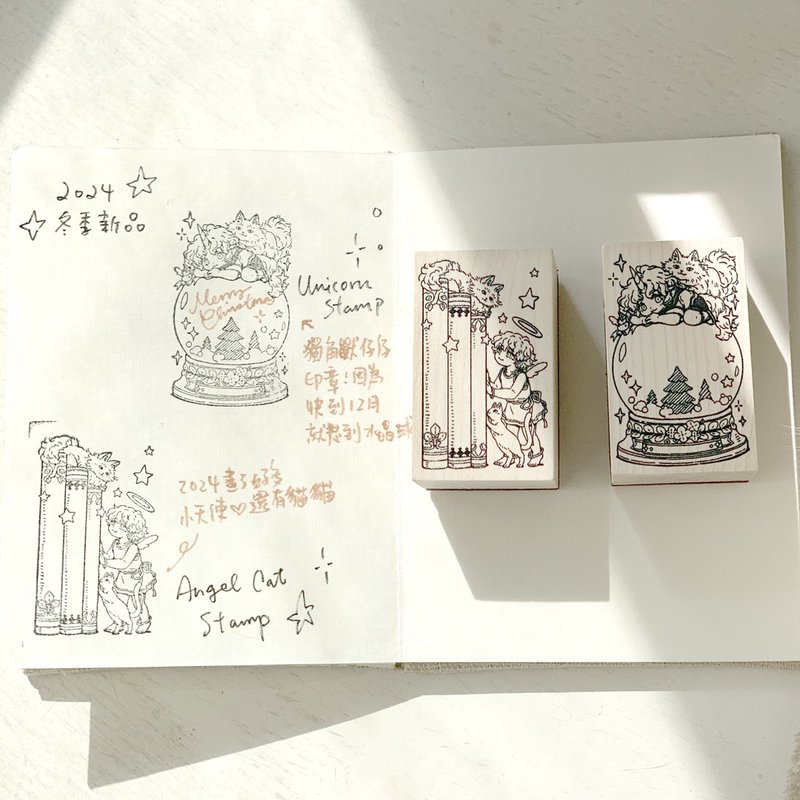 2024
冬季新品
Merry
Christmas
Unicorn
Stamp
獨角獸仔仔
印章！因為
快到12月
就想到水晶球
2024畫了好多
小天使♡還有貓貓
Angel Cat
Stamp